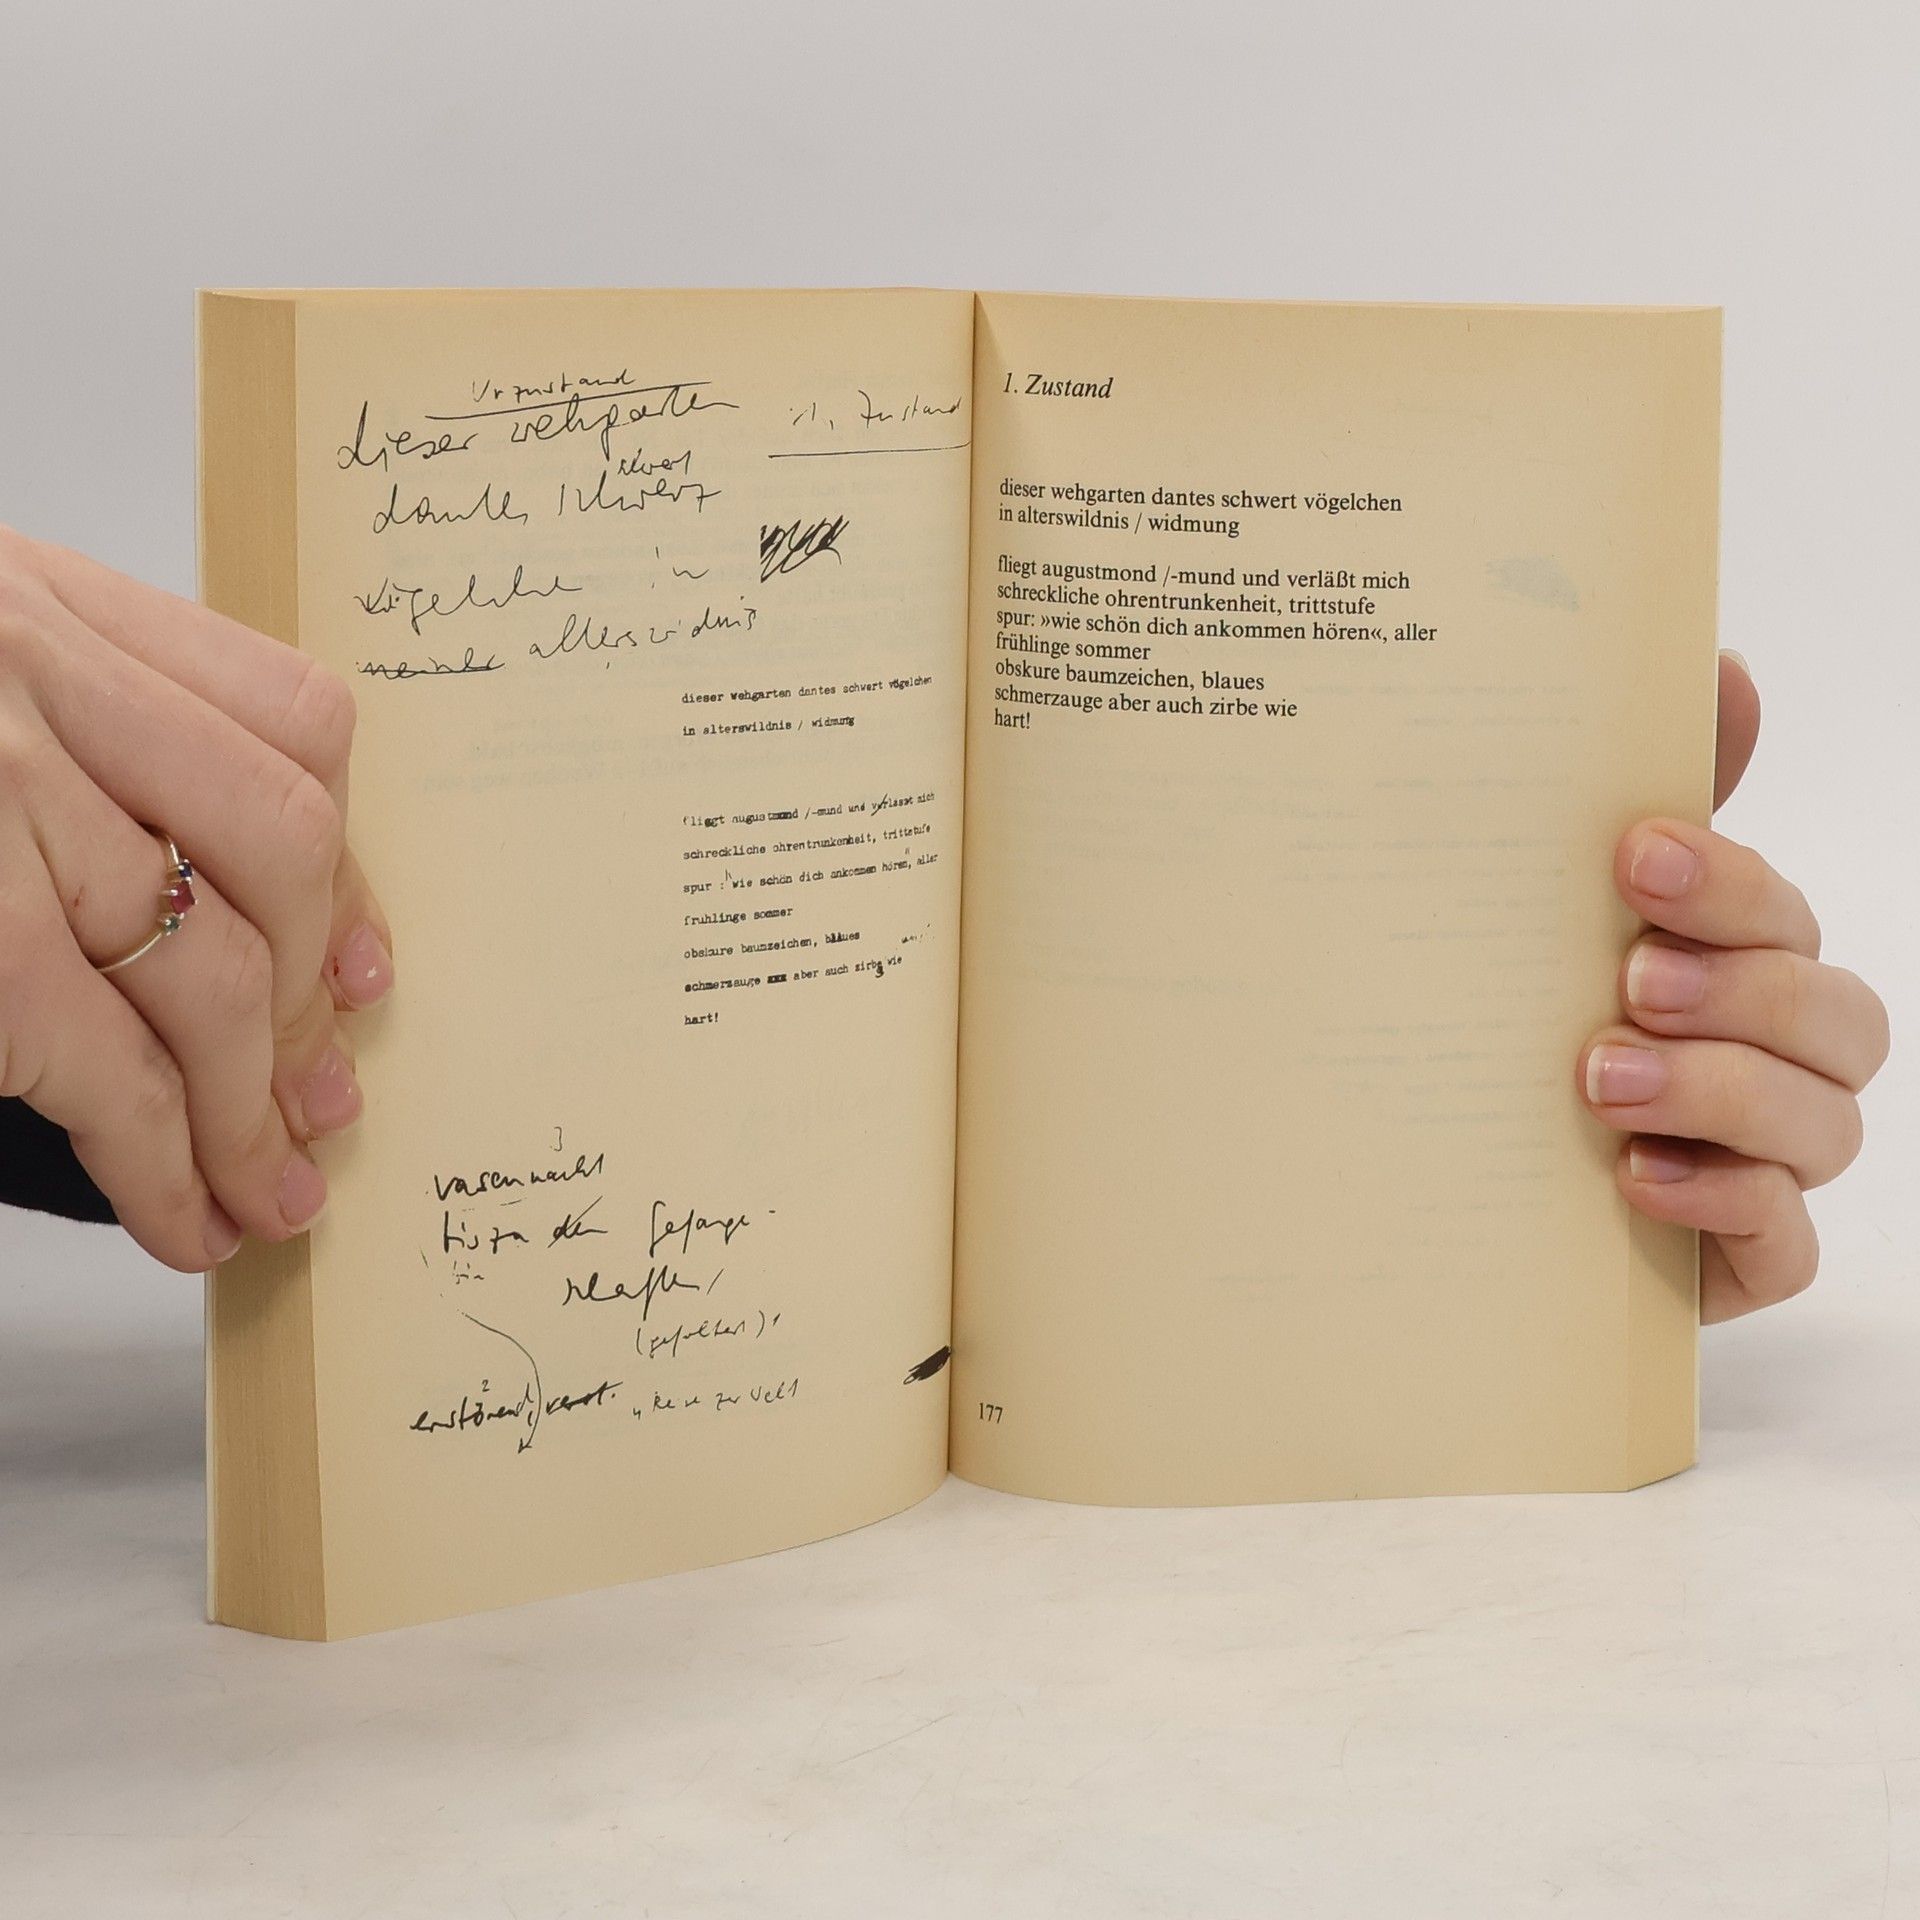 Urzustand
dieser wehgarten
1. Zustand
schwert
dantes schwerz
vögelchen in
meiner alterswildnis
dieser wehgarten dantes schwert vögelchen
in alterswildnis / widmung
fliegt augustmond /-mund und verlässt mich
schreckliche ohrentrunkenheit, trittstufe
spur : "wie schön dich ankommen hören", aller
fruhlinge sommer
obskure baumzeichen, blaues
schmerzauge xxx aber auch zirbe wie
hart!
3
vasennacht
bis zu den Gefange-
schaften,
(gefoltert),
2
verst.
"Reise zur Welt
1. Zustand
dieser wehgarten dantes schwert vögelchen
in alterswildnis / widmung
fliegt augustmond /-mund und verläßt mich
schreckliche ohrentrunkenheit, trittstufe
spur: »wie schön dich ankommen hören«, aller
frühlinge sommer
obskure baumzeichen, blaues
schmerzauge aber auch zirbe wie
hart!
177